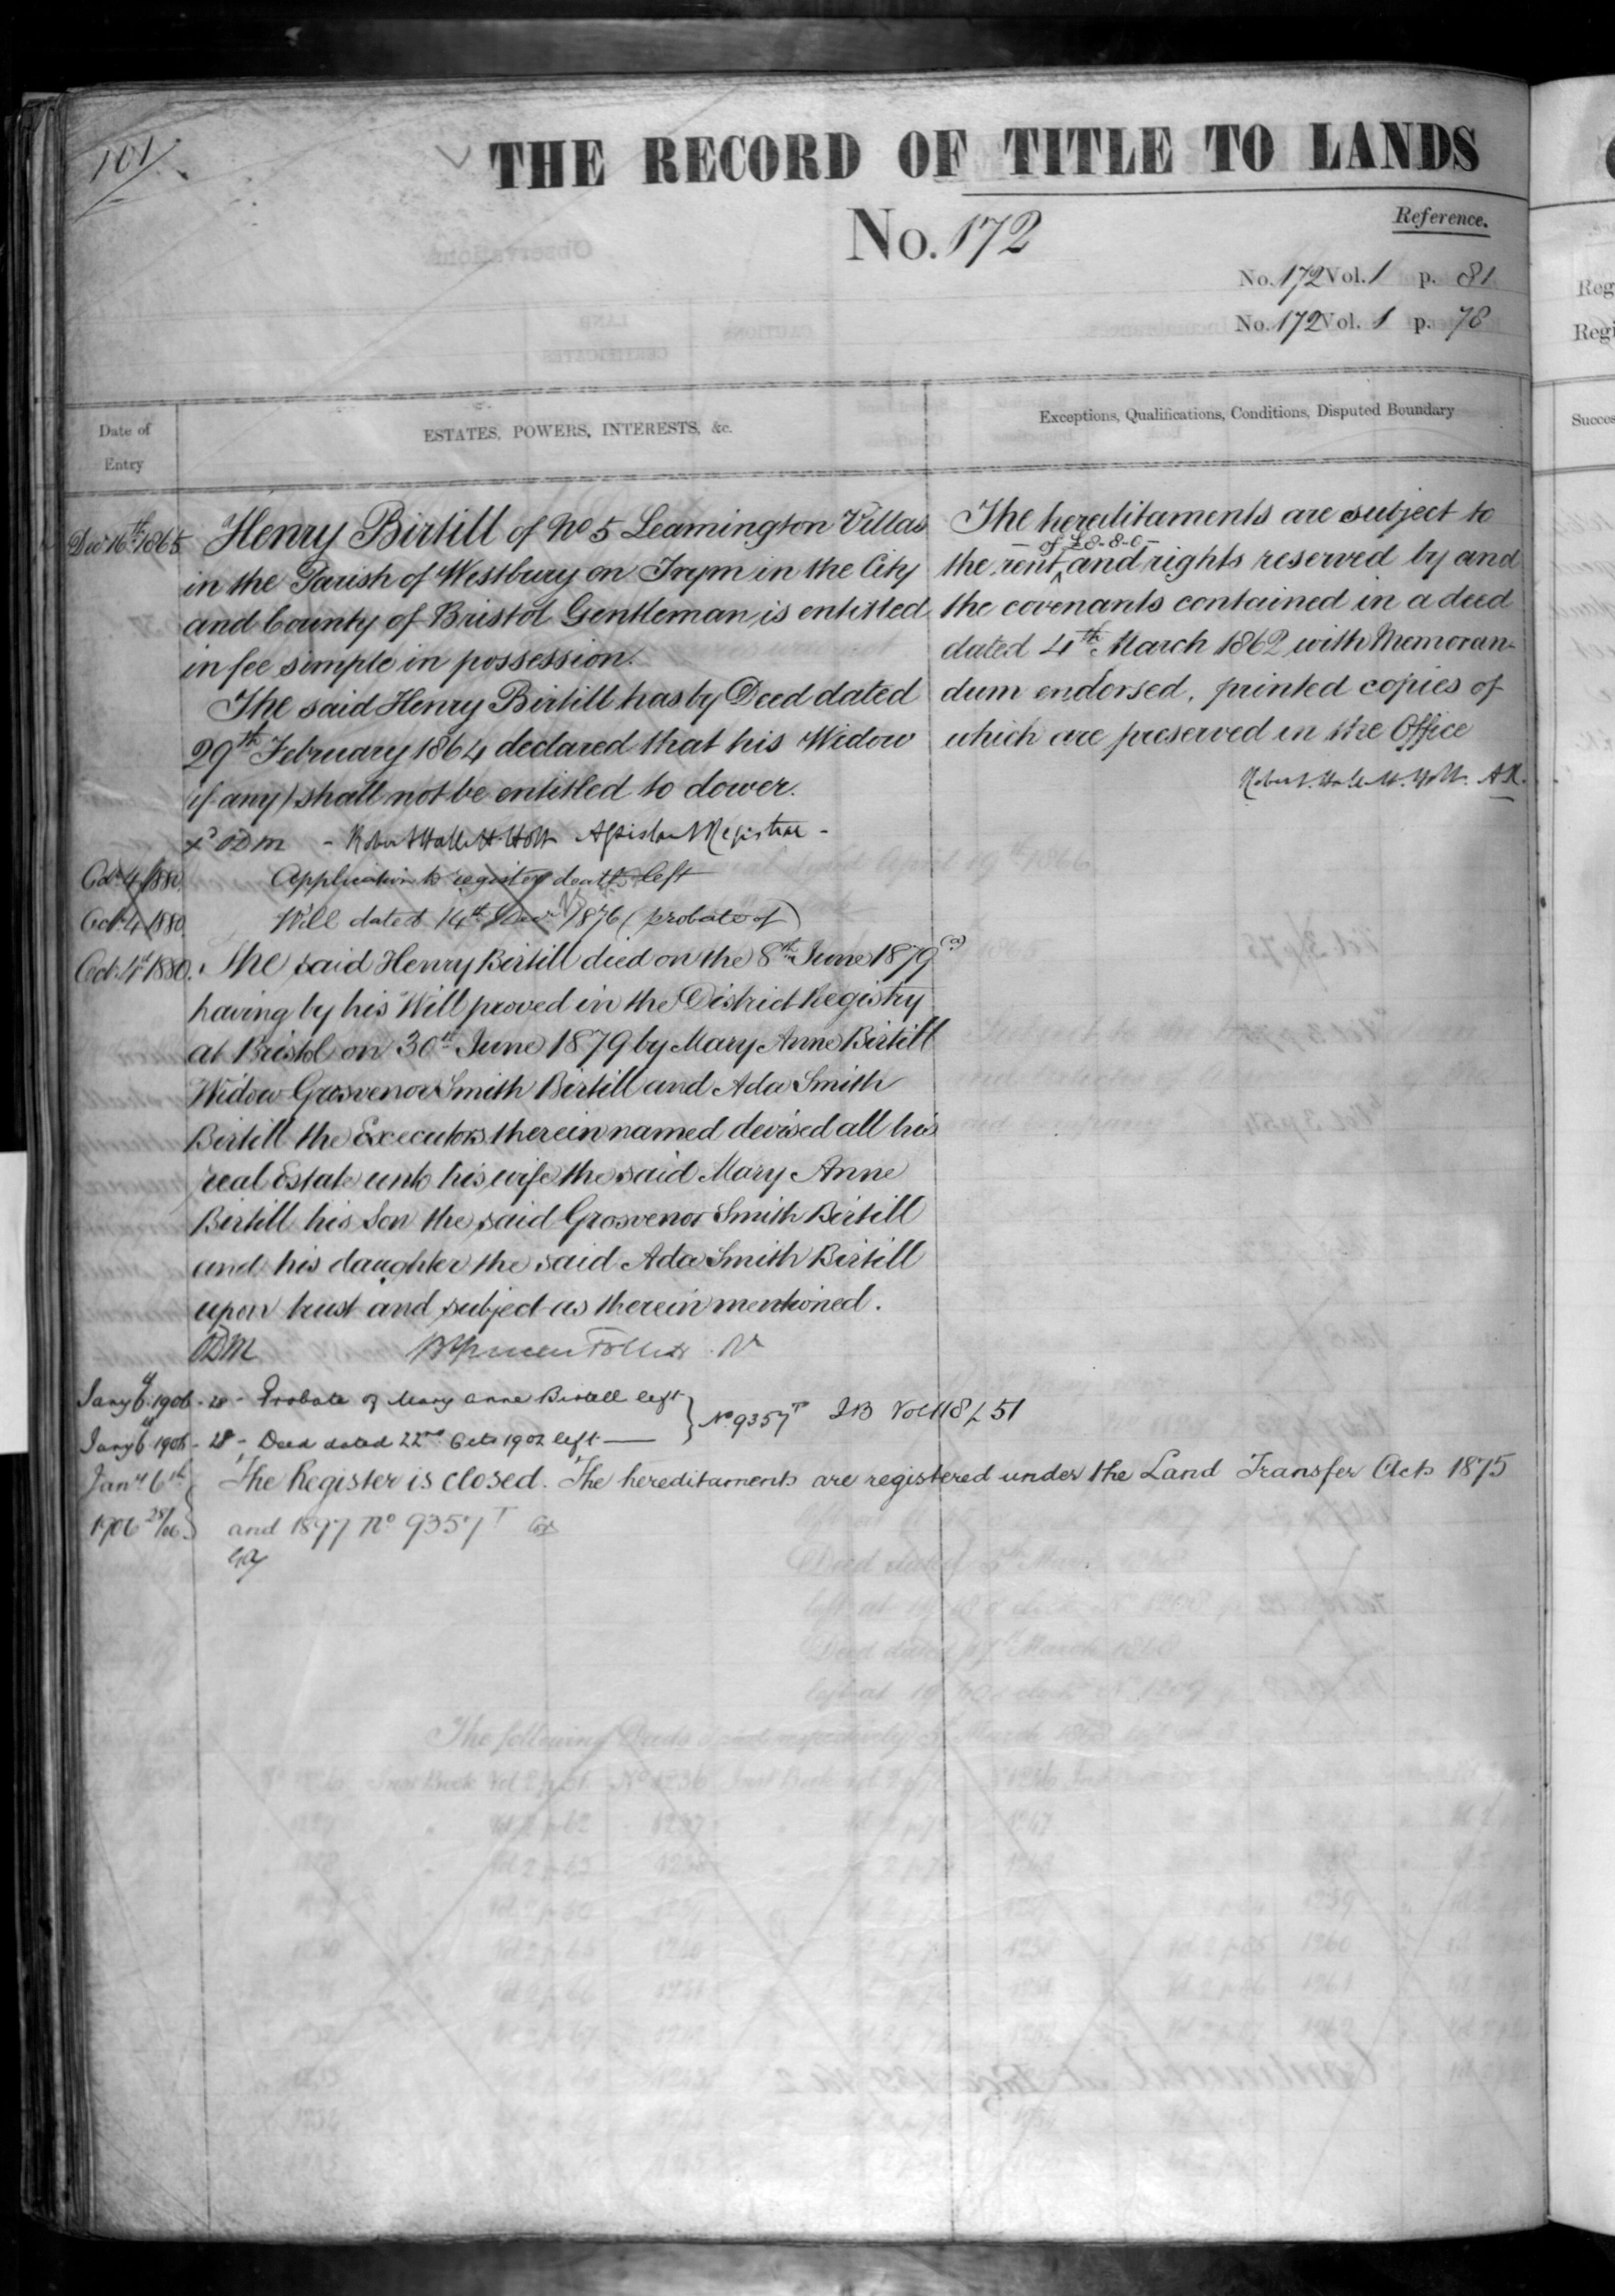 101
THE RECORD OF TITLE TO LANDS
No. 172
Reference.
No. 172 Vol. 1 p. 81
No. 172 Vol. 1 p. 78
Date of Entry
ESTATES, POWERS, INTERESTS, &c.
Exceptions, Qualifications, Conditions, Disputed Boundary
Decr 16th 1865 Henry Birtill of No 5 Leamington Villas
in the Parish of Westbury on Trym in the City
and County of Bristol Gentleman is entitled
in fee simple in possession.
The said Henry Birtill has by Deed dated
29th February 1864 declared that his Widow
(if any) shall not be entitled to dower.
xd ODM - Robert Hallett Holt Assistant Registrar -
The hereditaments are subject to
the rent of £8-8-0- and rights reserved by and
the covenants contained in a deed
dated 4th March 1862 with Memoran-
dum endorsed, printed copies of
which are preserved in the Office
Robert Hallett Holt. AR.
Oct. 4 1880 Application to register death left
Oct. 4 1880 Will dated 14th 1876 (probate of)
Oct. 4th 1880. The said Henry Birtill died on the 8th June 1879 (a)
having by his Will proved in the District Registry
at Bristol on 30th June 1879 by Mary Anne Birtill
Widow Grosvenor Smith Birtill and Ada Smith
Birtill the Executors therein named devised all his
real Estate unto his wife the said Mary Anne
Birtill his Son the said Grosvenor Smith Birtill
and his daughter the said Ada Smith Birtill
upon trust and subject as therein mentioned.
ODM
Jany 6 1906 - 28 - Probate of Mary Anne Birtill left
Jany 6 1906 - 28 - Deed dated 22nd Octr 1902 left
No 9357 T IB Vol 118 f. 51
Jany 6th The Register is closed. The hereditaments are registered under the Land Transfer Acts 1875
1906 28/06 and 1897 No 9357 T
Reg
Regi
Succes